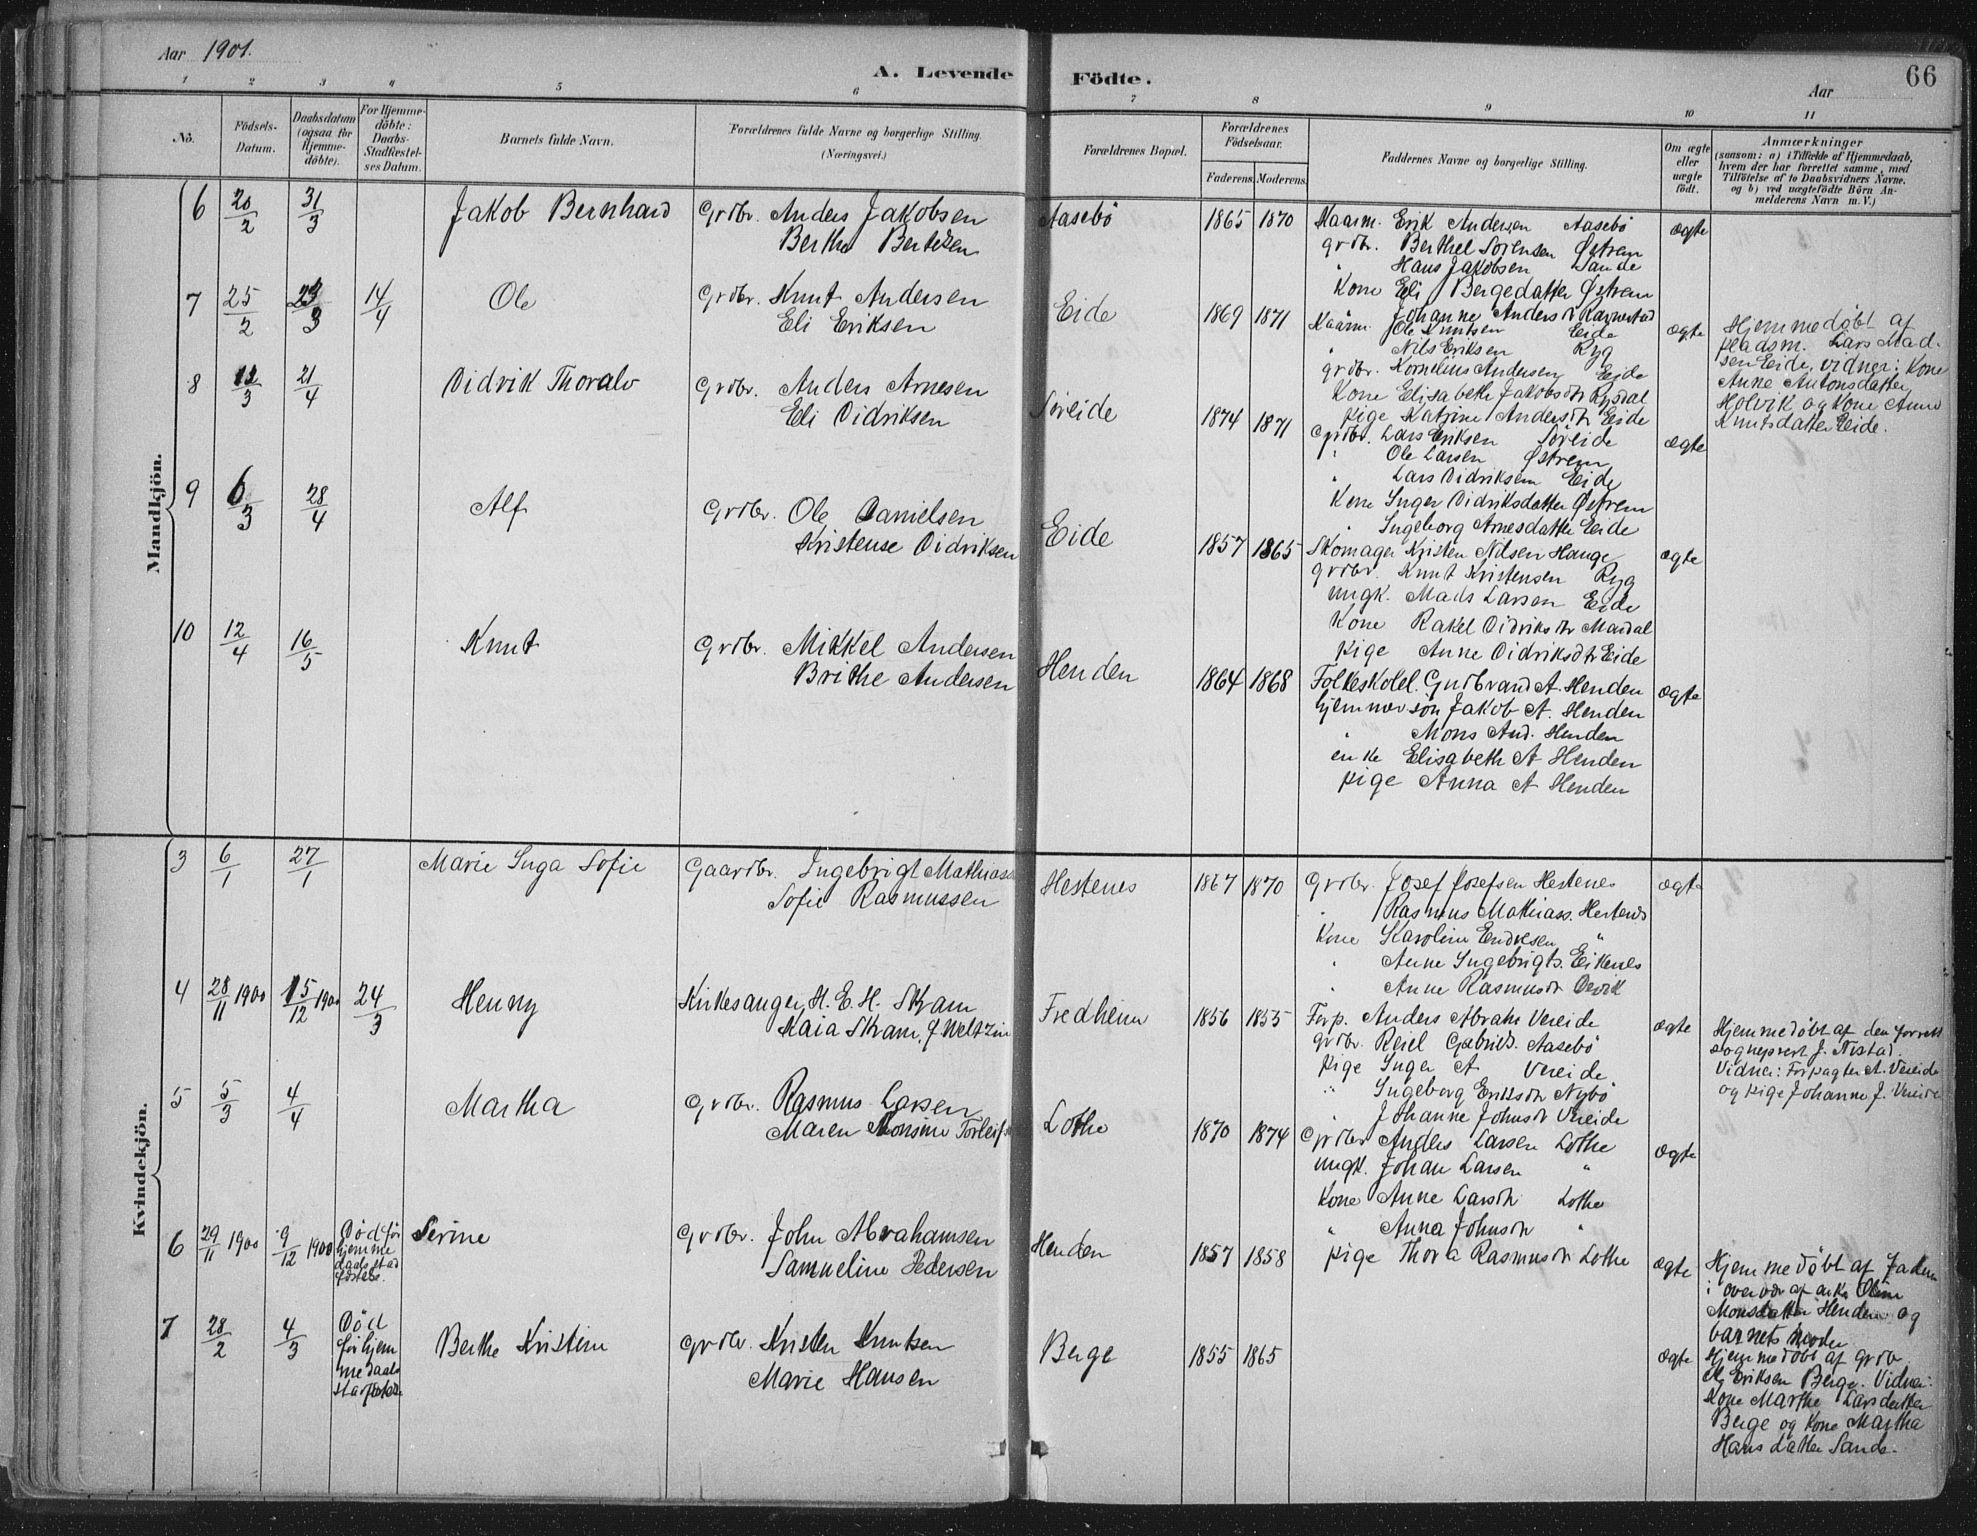 Aar 1901.
A. Levende Födte.
Aar
66
1 2 3 4 5 6 7 8 9 10 11
No.
Födsels-Datum.
Daabsdatum (ogsaa for Hjemme-döbte).
For Hjemme-döbte: Daabs-Stadfæstel-ses Datum.
Barnets fulde Navn.
Forældrenes fulde Navne og borgerlige Stilling. (Næringsvei.)
Forældrenes Bopæl.
Forældrenes Födselsaar.
Faderens. Moderens.
Faddernes Navne og borgerlige Stilling.
Om ægte eller uægte födt.
Anmærkninger
(saasom: a) i Tilfælde af Hjemmedaab,
hvem der har forrettet samme, med
Tilföielse af to Daabsvidners Navne.
og b) ved uægtefödte Börn An-
melderens Navn m. V.)
Mandkjön.
6 20/2 31/3 Jakob Bernhard Grdbr. Anders Jakobsen Aasebö 1865 1870 Kaarm. Erik Andersen Aasebö ægte
Berthe Bertelsen
grdbr. Berthel Sörensen Østrem
" Hans Jakobsen Sande
Kone Eli Bergedatter Østrem
Johanne Andersdr
7 25/2 23/3 14/4 Ole Grdbr. Knut Andersen Eide 1869 1871 Kaarm. Ole Knutsen Eide ægte
Eli Eriksen
" Nils Eriksen Ryg
grdbr. Kornelius Andersen Eide
Kone Elisabeth Jakobsdtr Rysdal
pige Katrine Andersdtr Eide
Hjemmedöbt af
pladsm. Lars Mad-
sen Eide, vidner: Kone
Anne Antonsdatter
Holvik og Kone Anne
Knutsdatter Eide.
8 12/3 21/4 Didrik Thoralv Grdbr. Anders Arnesen Söreide 1874 1871 Grdbr. Lars Eriksen Söreide ægte
Eli Didriksen
" Ole Larsen Østrem
" Lars Didriksen Eide
Kone Inger Didriksdatter Østrem
" Ingeborg Arnesdatter Eide
9 6/3 28/4 Alf Grdbr. Ole Danielsen Eide 1857 1865 Skomager Kristen Nilsen Hauge ægte
Kristense Didriksen
grdbr. Knut Kristensen Ryg
ungk. Mads Larsen Eide
Kone Rakel Didriksdtr Mardal
pige Anne Didriksdtr Eide
10 12/4 16/5 Knut Grdbr. Mikkel Andersen Henden 1864 1868 Folkeskolel. Gudbrand A. Henden ægte
Brithe Andersen
hjemmev sön Jakob A. Henden
" Mons And. Henden
enke Elisabeth A Henden
pige Anna A Henden
Kvindekjön.
3 6/1 27/1 Marie Inga Sofie Gaardbr. Ingebrigt Mathiass Hestenes 1867 1870 Grdbr. Josef Josefsen Hestenes ægte
Sofie Rasmussen
" Rasmus Mathiass. Hestenes
Kone Karoline Endresen "
" Anne Ingebrigts. Eikenes
" Anne Rasmusdr
4 28/11 1900 15/12 1900 24/3 Henny Kirkesanger H. E. H. Skram Fredheim 1856 1855 Forp. Anders Abrah. Vereide ægte
Kaia Skram, f Weltzin
grdbr. Reiel Gabriels. Aasebö
pige Inger A Vereide
" Ingeborg Eriksdr Nybö
" Johanne Johnsdr Vereide
Hjemmedöbt af den forrett
sogneprest J. Nistad.
Vidner: Forpagter A. Vereide
og pige Johanne J. Vereide
5 5/3 4/4 Martha Grdbr. Rasmus Larsen Lothe 1870 1874 Grdbr Anders Larsen Lothe ægte
Maren Monsine Torleifs
ungk. Johan Larsen "
Kone Anne Larsdr Lothe
" Anna Johnsdr "
pige Thora Rasmusdr Lothe
6 29/11 1900 9/12 1900 Död för hjemme daabs stad fæstels. Serine Grdbr. John Abrahamsen Henden 1857 1858 ægte
Samueline Pedersen
Hjemmedöbt af Faderen
i overvær af enke Oline
Monsdatter Henden og
barnets moder
7 28/2 4/3 Död för hjem me daabs Berthe Kristine Grdbr. Kristen Knutsen Berge 1855 1865 ægte
Marie Hansen
Hjemmedöbt af Grdb
Eriksen Berge. Vidner:
Kone Marthe Larsdatter
Berge og Kone Martha
Hansdatter Sande.